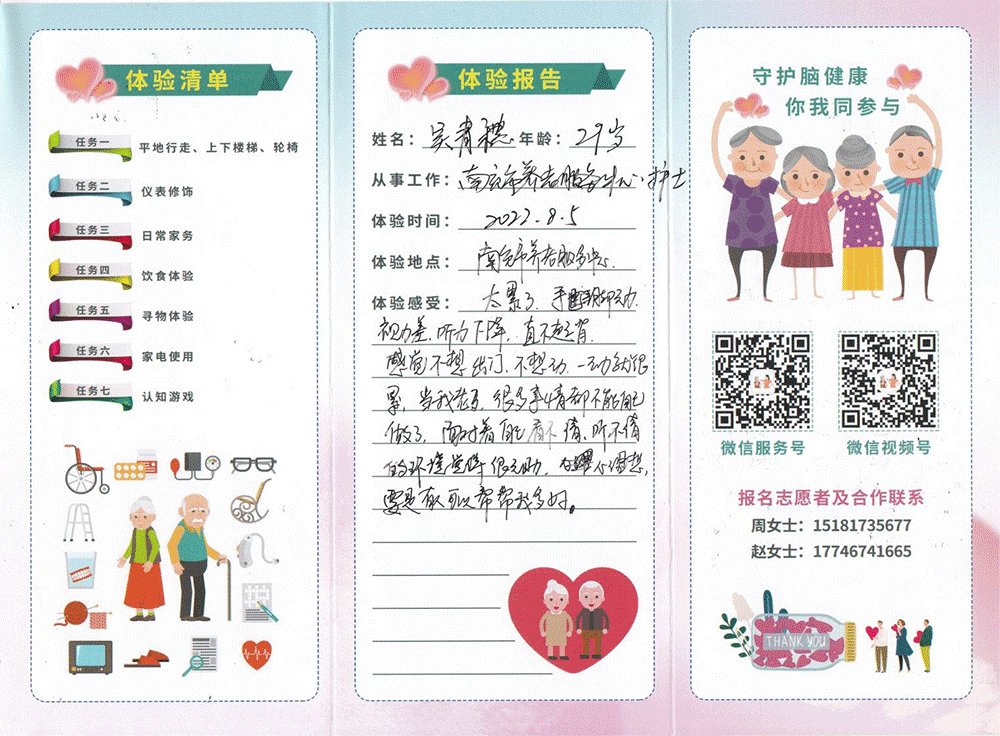 体验清单
任务一 平地行走、上下楼梯、轮椅
任务二 仪表修饰
任务三 日常家务
任务四 饮食体验
任务五 寻物体验
任务六 家电使用
任务七 认知游戏
体验报告
姓名：吴青穗 年龄：29岁
从事工作：南充市养老服务中心护士
体验时间：2022.8.5
体验地点：南充市养老服务中心
体验感受：太累了，手脚动
视力差，听力下降，直不起背
感觉不想出门，不想动，一动就很
累，当我老了，很多事情都不能自己
做了，面对着自己看不清、听不清
的环境觉得很无助，心想，
要是有人可以帮帮我多好。
守护脑健康
你我同参与
微信服务号
微信视频号
报名志愿者及合作联系
周女士：15181735677
赵女士：17746741665
THANK YOU